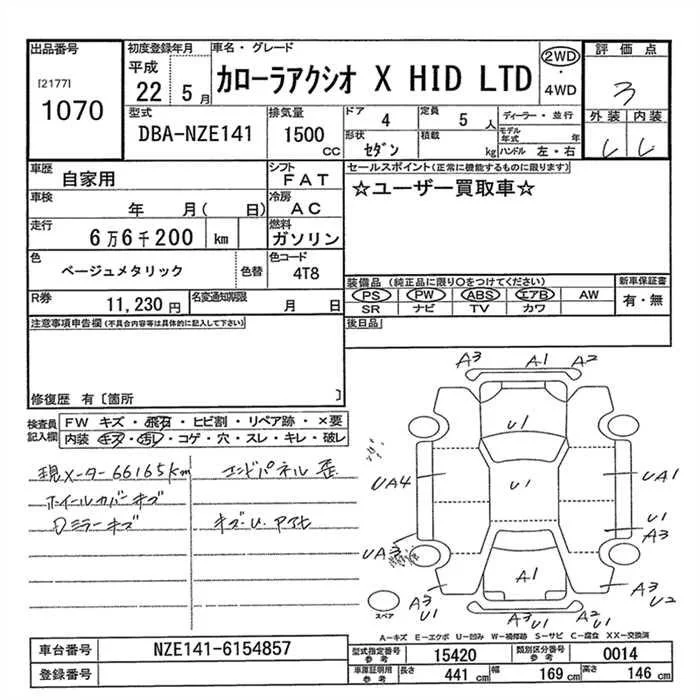 出品番号
[2177]
1070
初度登録年月
平成
22 5 月
車名・グレード
カローラアクシオ X HID LTD
2WD
・
4WD
評価点
3
外装 内装
型式
DBA-NZE141
排気量
1500 CC
ドア 4
定員 5 人
形状 セダン
積載 kg
ディーラー・並行
モデル年式 年
ハンドル 左・右
車歴 自家用
シフト FAT
車検 年 月( 日)
冷房 AC
走行 6万6千200 km
燃料 ガソリン
色 ベージュメタリック 色替
色コード 4T8
R券 11,230 円
名変通知期限 月 日
セールスポイント(正常に機能するものに限ります)
☆ユーザー買取車☆
装備品 (純正品に限り○をつけてください)
PS PW ABS エアB AW
SR ナビ TV カワ
新車保証書
有・無
後日品
注意事項申告欄(不具合内容等は具体的に記入して下さい)
修復歴 有〔箇所 〕
検査員記入欄
FW キズ・飛石・ヒビ割・リペア跡・×要
内装 キズ・汚レ・コゲ・穴・スレ・キレ・破レ
現メーター66165km
ホイールカバーキズ
Dミラーキズ
エンドパネル歪
キズ・U.
A3 A1 A2
U1
UA4 U1 UA1
U1
A3
UA3
A1
A3
U1
A3
U1
A3
U2
スペア
A-キズ E-エクボ U-凹み W-補修跡 S-サビ C-腐食 XX-交換済
車台番号 NZE141-6154857
登録番号
型式指定番号 参考 15420
類別区分番号 参考 0014
車庫証明用 参考 長さ 441 cm 幅 169 cm 高さ 146 cm